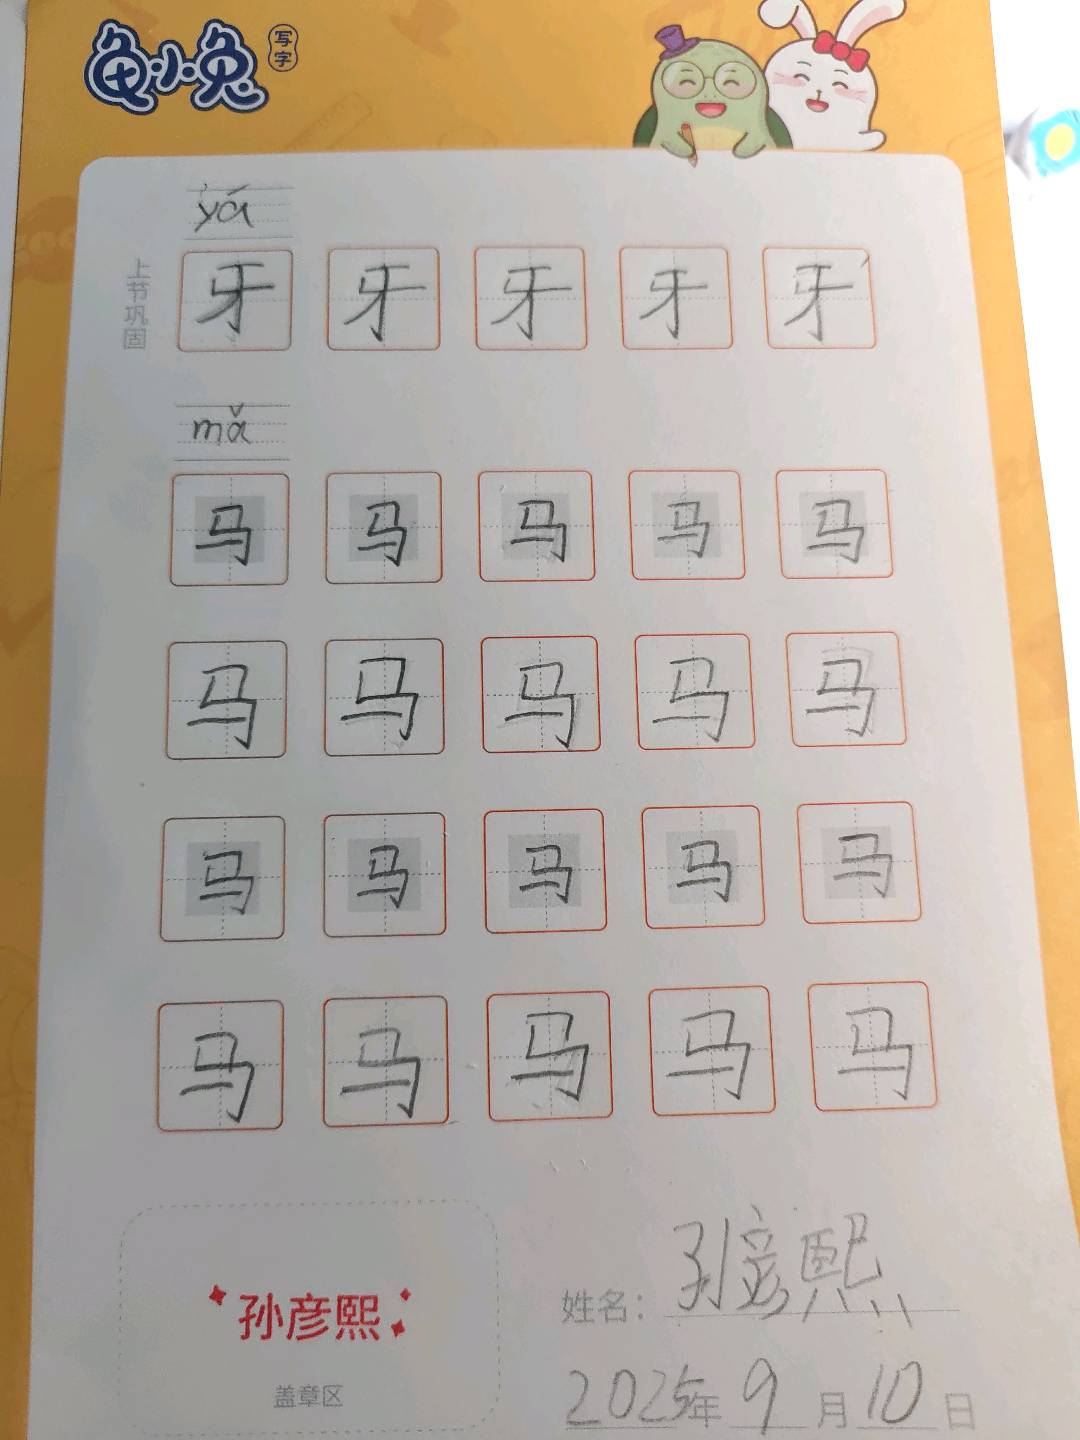 龟小兔 写字
yá
上节巩固
牙 牙 牙 牙 牙
mǎ
马 马 马 马 马
马 马 马 马 马
马 马 马 马 马
马 马 马 马 马
孙彦熙
盖章区
姓名：孙彦熙
2025年 9 月 10 日